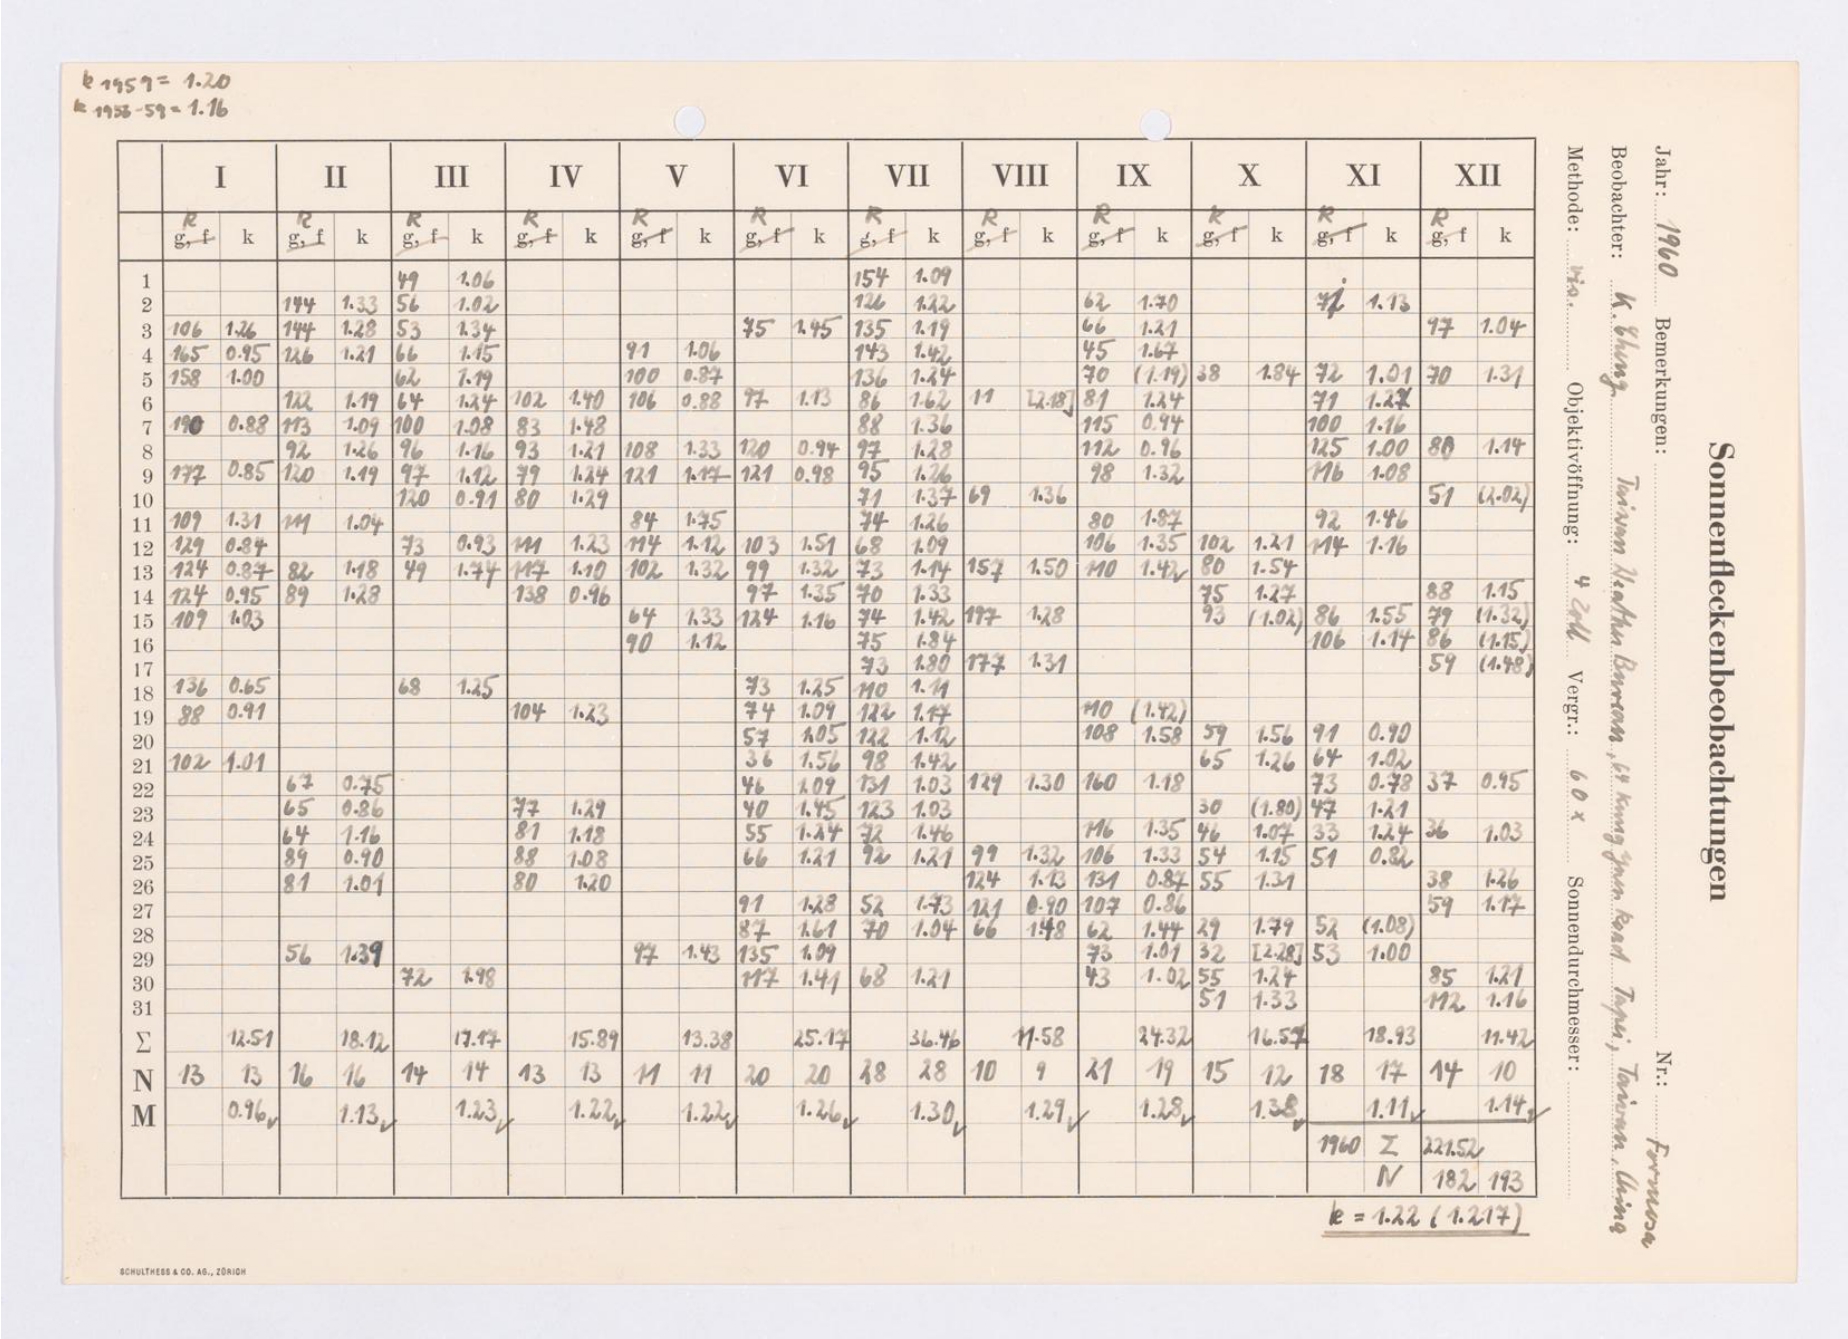 k 1959 = 1.20
k 1953-59 = 1.16
Sonnenfleckenbeobachtungen
Jahr: 1960 Bemerkungen: Nr.: Formosa
Beobachter: K. Bhung Taiwan Weather Bureau, 64 Kung Yuan Road Taipei, Taiwan, China
Methode: vis. Objektivöffnung: 4 Zoll Vergr.: 60 x Sonnendurchmesser:
I II III IV V VI VII VIII IX X XI XII
R R R R R R R R R R R R
g, f k g, f k g, f k g, f k g, f k g, f k g, f k g, f k g, f k g, f k g, f k g, f k
1 49 1.06 154 1.09
2 144 1.33 56 1.02 126 1.22 62 1.70 71 1.13
3 106 1.26 144 1.28 53 1.34 75 1.45 135 1.19 66 1.21 97 1.04
4 165 0.95 126 1.21 66 1.15 91 1.06 143 1.42 45 1.67
5 158 1.00 62 1.19 100 0.87 136 1.24 70 (1.19) 38 1.84 72 1.01 70 1.31
6 122 1.19 64 1.24 102 1.40 106 0.88 97 1.13 86 1.62 11 [2.18] 81 1.24 71 1.27
7 190 0.88 113 1.09 100 1.08 83 1.48 88 1.36 115 0.94 100 1.16
8 92 1.26 96 1.16 93 1.21 108 1.33 120 0.94 97 1.28 112 0.96 125 1.00 80 1.14
9 177 0.85 120 1.19 97 1.12 79 1.24 121 1.17 121 0.98 95 1.26 98 1.32 116 1.08
10 120 0.91 80 1.29 71 1.37 69 1.36 51 (2.02)
11 109 1.31 111 1.04 84 1.75 74 1.26 80 1.87 92 1.46
12 129 0.84 73 0.93 111 1.23 114 1.12 103 1.51 68 1.09 106 1.35 102 1.21 114 1.16
13 124 0.87 82 1.18 49 1.74 117 1.10 102 1.32 99 1.32 73 1.14 157 1.50 110 1.42 80 1.54
14 124 0.95 89 1.28 138 0.96 97 1.35 70 1.33 75 1.27 88 1.15
15 109 1.03 64 1.33 124 1.16 74 1.42 197 1.28 93 (1.02) 86 1.55 79 (1.32)
16 90 1.12 75 1.84 106 1.14 86 (1.15)
17 73 1.80 177 1.31 59 (1.48)
18 136 0.65 68 1.25 73 1.25 110 1.11
19 88 0.91 104 1.23 74 1.09 122 1.17 110 (1.42)
20 57 1.05 122 1.12 108 1.58 59 1.56 91 0.90
21 102 1.01 36 1.56 98 1.42 65 1.26 64 1.02
22 67 0.75 46 1.09 131 1.03 129 1.30 160 1.18 73 0.78 37 0.95
23 65 0.86 77 1.29 40 1.45 123 1.03 30 (1.80) 47 1.21
24 64 1.16 81 1.18 55 1.24 72 1.46 116 1.35 46 1.07 33 1.24 36 1.03
25 89 0.90 88 1.08 66 1.21 92 1.21 99 1.32 106 1.33 54 1.15 51 0.82
26 81 1.01 80 1.20 124 1.13 131 0.87 55 1.31 38 1.26
27 91 1.28 52 1.73 121 0.90 107 0.86 59 1.17
28 87 1.61 70 1.04 66 1.48 62 1.44 29 1.79 52 (1.08)
29 56 1.39 97 1.43 135 1.09 73 1.01 32 [2.28] 53 1.00
30 72 1.98 117 1.41 68 1.21 43 1.02 55 1.24 85 1.21
31 51 1.33 112 1.16
Σ 12.51 18.12 17.17 15.89 13.38 25.17 36.46 11.58 24.32 16.57 18.93 11.42
N 13 13 16 16 14 14 13 13 11 11 20 20 28 28 10 9 21 19 15 12 18 17 14 10
M 0.96 1.13 1.23 1.22 1.22 1.26 1.30 1.29 1.28 1.38 1.11 1.14
1960 Σ 221.52
N 182 193
k = 1.22 (1.217)
SCHULTHESS & CO. AG., ZÜRICH